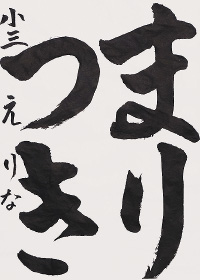 まり
つき
小三 えりな